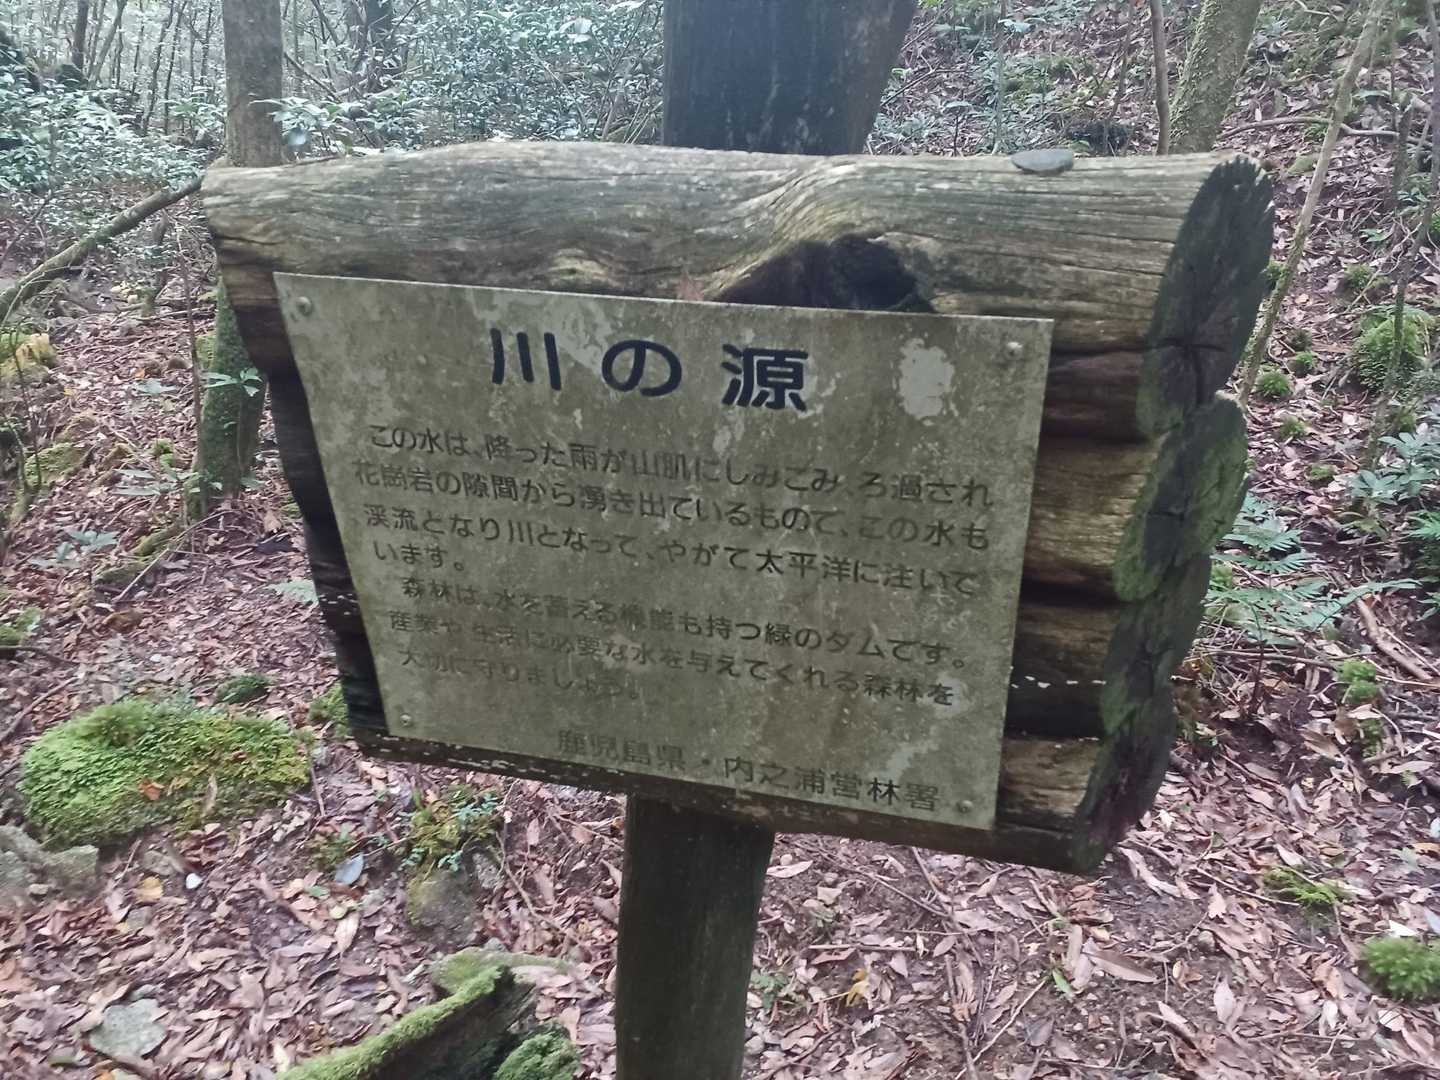 川の源
この水は、降った雨が山肌にしみこみ、ろ過され
花崗岩の隙間から湧き出ているもので、この水も
渓流となり川となって、やがて太平洋に注いで
います。
森林は、水を蓄える機能も持つ緑のダムです。
産業や生活に必要な水を与えてくれる森林を
大切に守りましょう。
鹿児島県・内之浦営林署